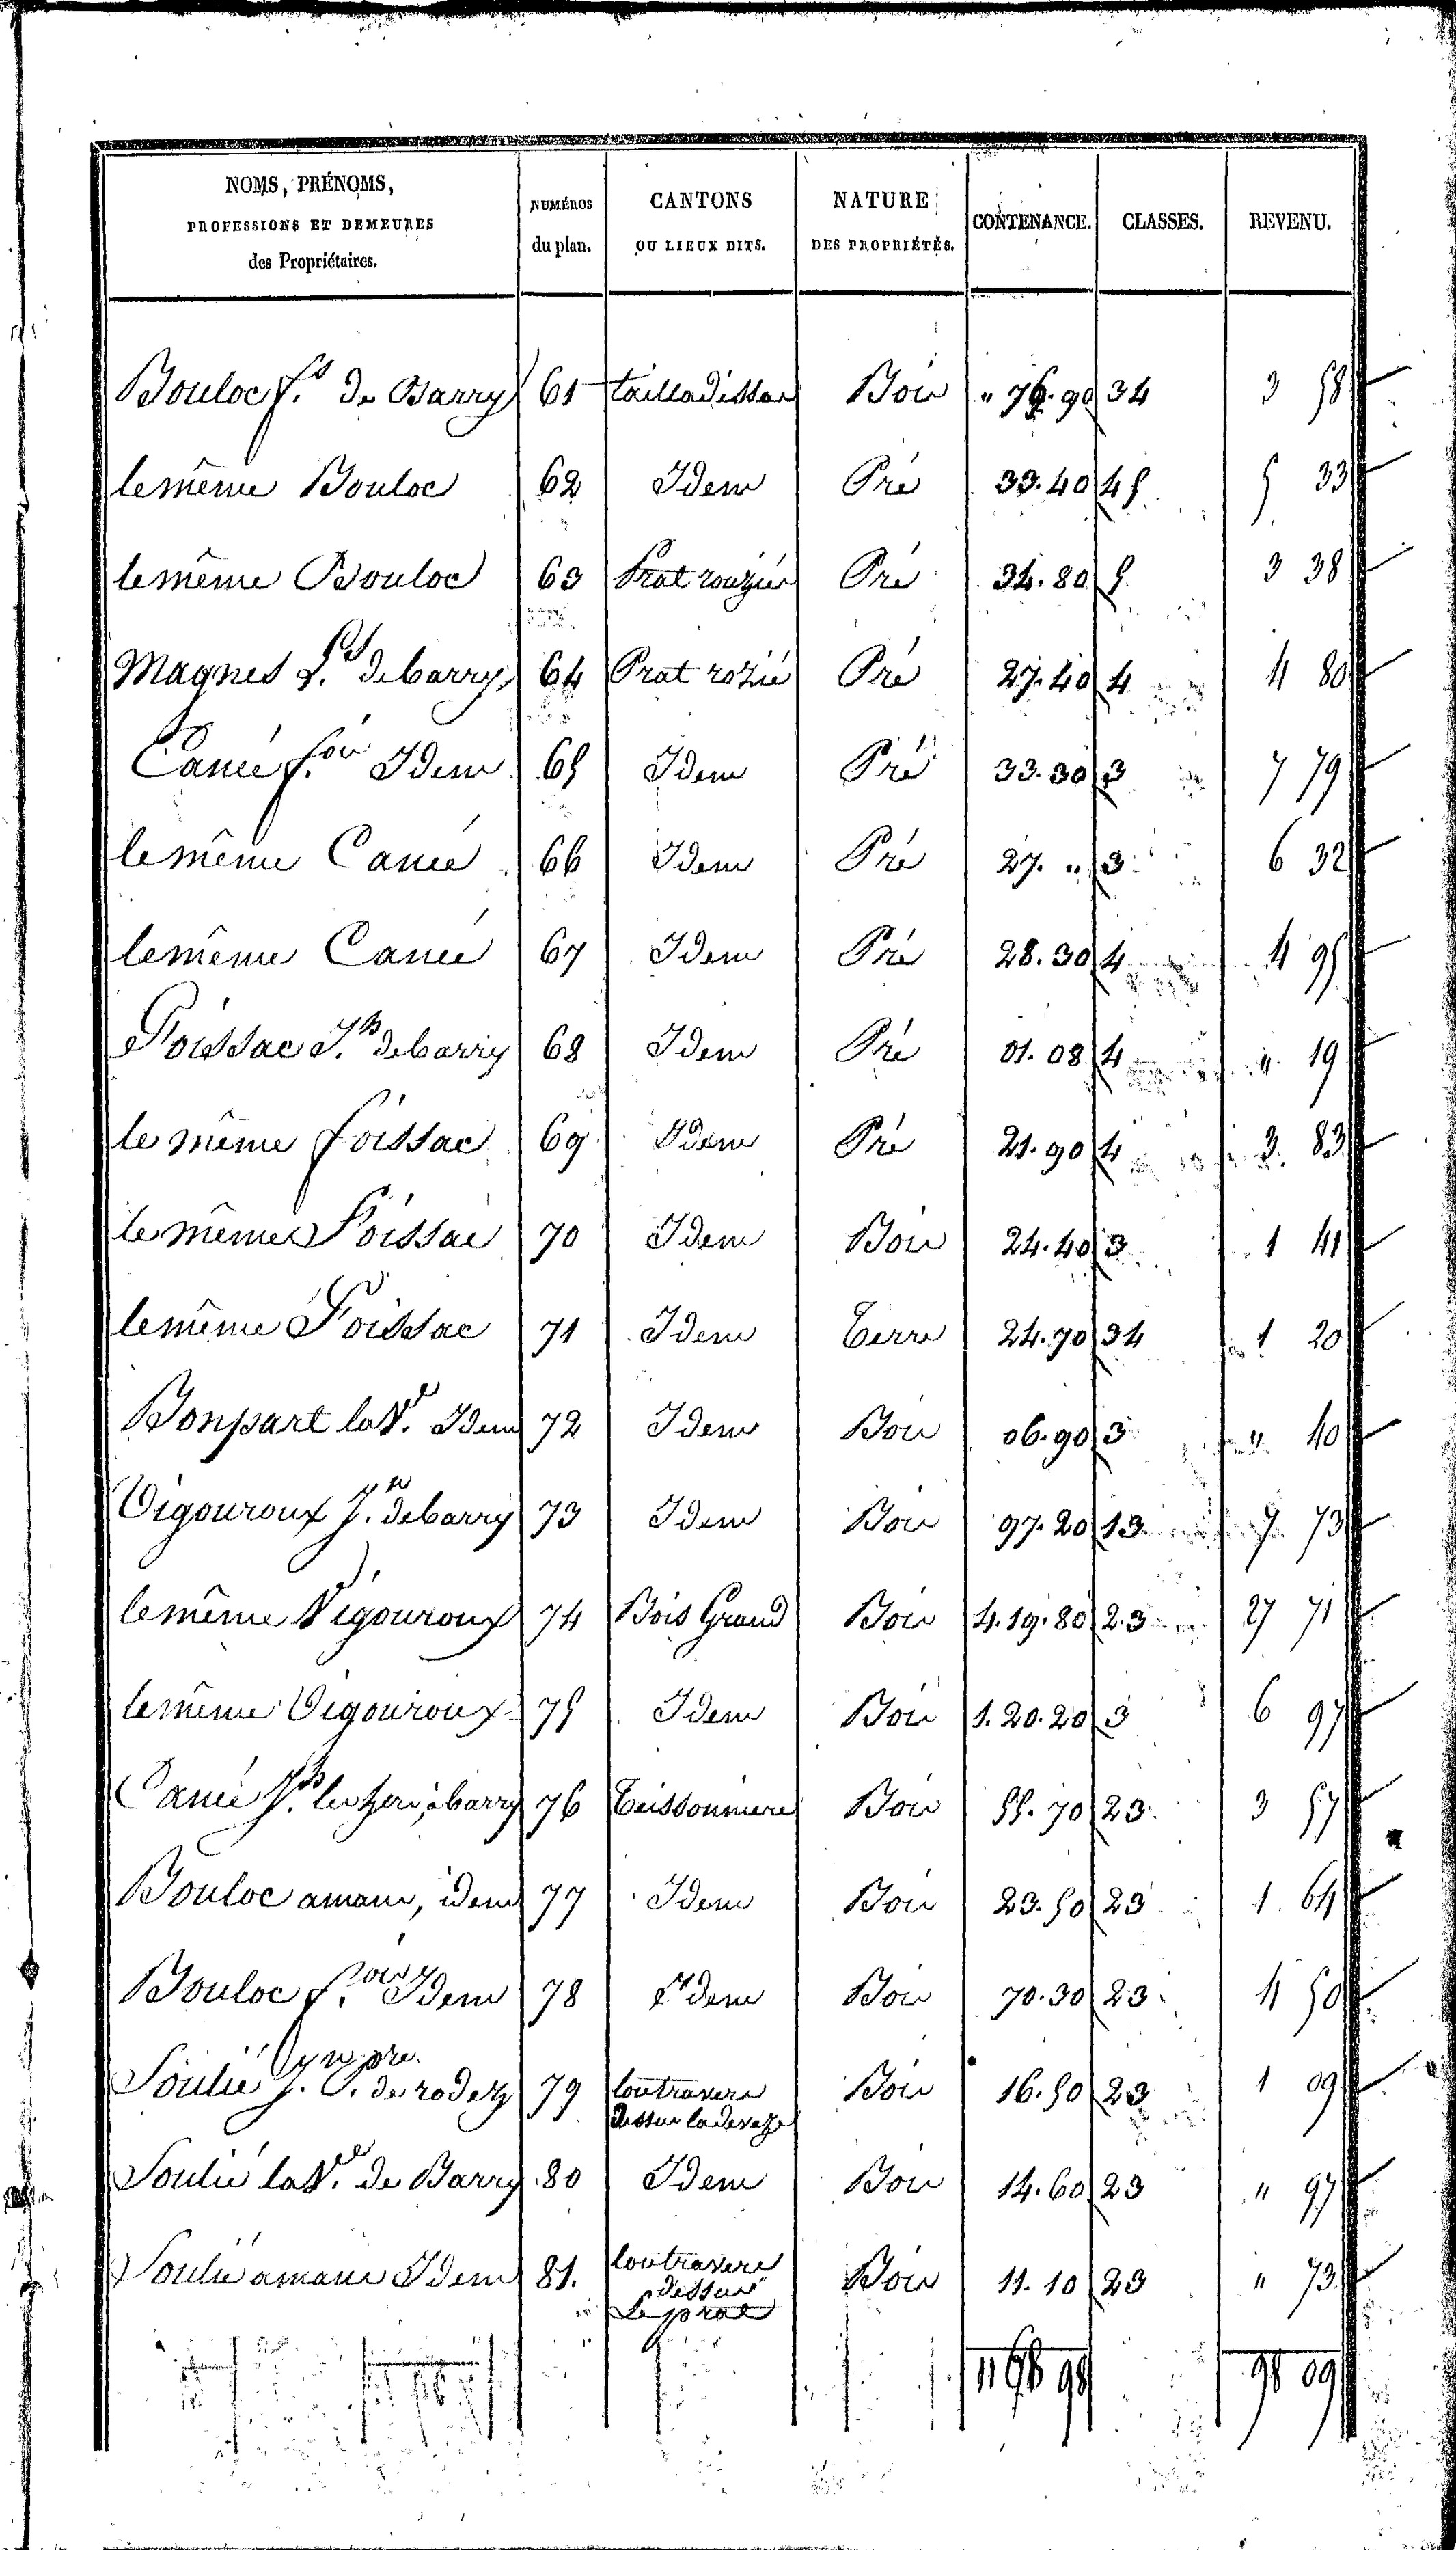 NOMS, PRÉNOMS, PROFESSIONS ET DEMEURES des Propriétaires. NUMÉROS du plan. CANTONS OU LIEUX DITS. NATURE DES PROPRIÉTÉS. CONTENANCE. CLASSES. REVENU.
Bouloc f.s de Barry 61 Bois " 76.90 34 3 58
le même Bouloc 62 Idem Pré 33.40 45 5 33
le même Bouloc 63 Prat rouzié Pré 34.80 5 3 38
Magnes de barry 64 Prat rozié Pré 27.40 4 4 80
Canié f.ois Idem 65 Idem Pré 33.30 3 7 79
le même Canié 66 Idem Pré 27. " 3 6 32
le même Canié 67 Idem Pré 28.30 4 4 95
Foissac J.h de barry 68 Idem Pré 01.08 4 " 19
le même foissac 69 Idem Pré 21.90 4 3 83
le même Foissac 70 Idem Bois 24.40 3 1 41
le même Foissac 71 Idem Terre 24.70 34 1 20
Bonpart la V.e Idem 72 Idem Bois 06.90 3 " 40
Vigouroux J.n de barry 73 Idem Bois 97.20 13 7 73
le même Vigouroux 74 Bois Grand Bois 4.19.80 2.3 27 71
le même Vigouroux 75 Idem Bois 1.20.20 3 6 97
Canié J.h barry 76 Teissonniere Bois 55.70 23 3 57
Bouloc amans, idem 77 Idem Bois 23.50 23 1. 64
Bouloc f.ois Idem 78 Idem Bois 70.30 23 4 50
Soulié J. P. de rodez 79 loutravers Bois 16.50 23 1 09
dessus la deveze
Soulié la V.e de Barry 80 Idem Bois 14.60 23 " 97
Soulié amans Idem 81. loutravers Bois 11.10 23 " 73
dessus
Le prat
98 09